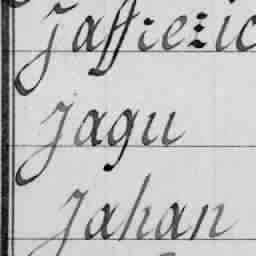 Jaffrezic
Jagu
Jahan